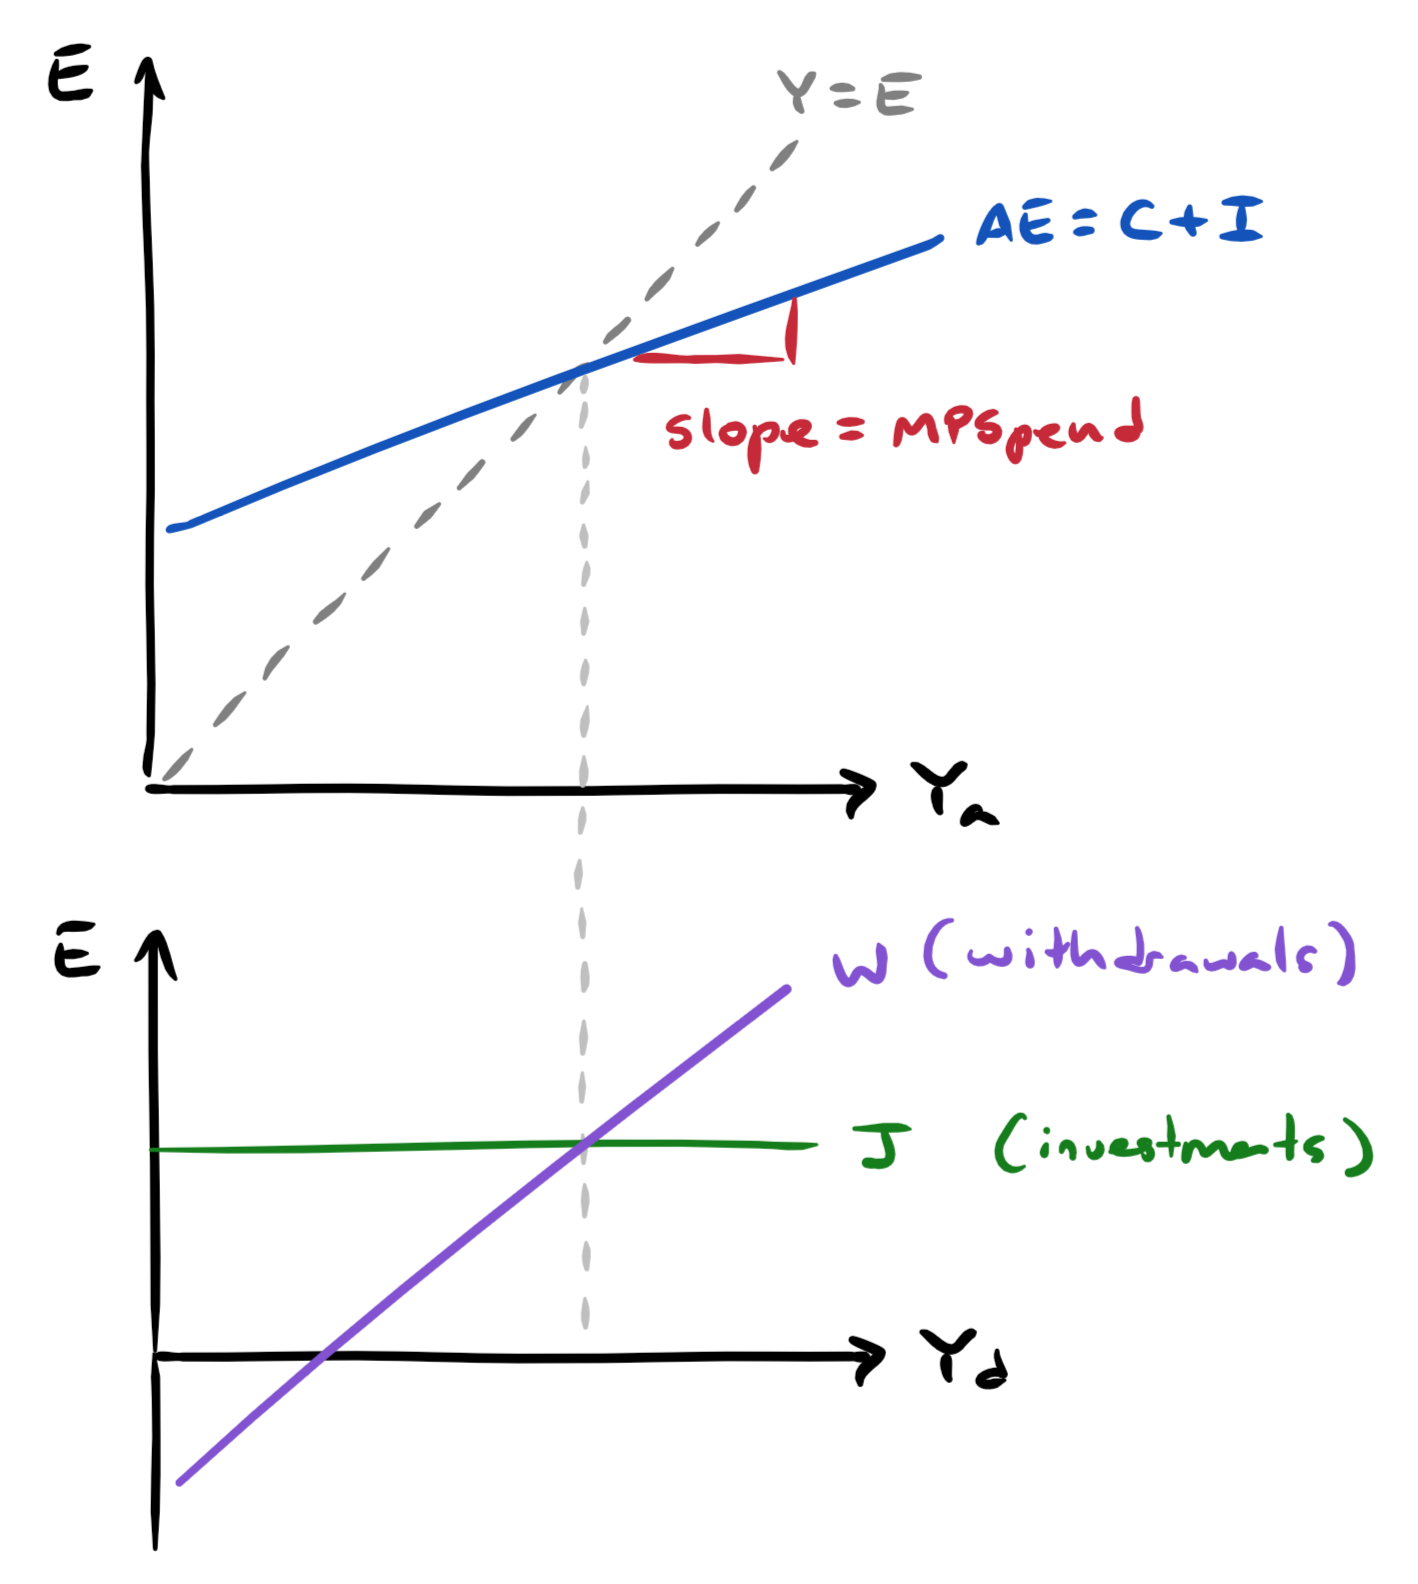 E
Y = E
AE = C + I
slope = MPSpend
Ya
E
W (withdrawals)
J (investments)
Yd